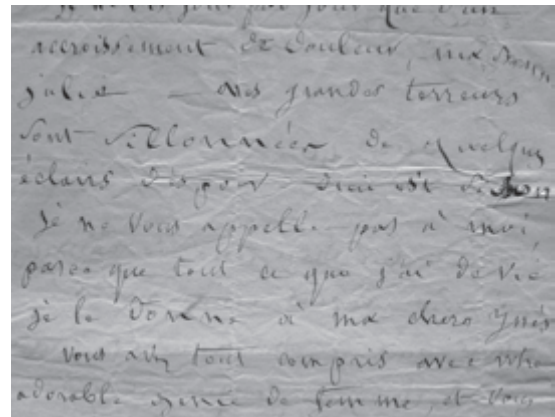 je ne suis jour par jour que d'un
accroissement de douleur, ma bonn
julie — mes grandes terreurs
sont sillonnées de quelques
éclairs d'espoir. Dieu est si bon
je ne vous appelle pas à moi,
parce que tout ce que j'ai de vie
je le donne à ma chère Ynès
vous avez tout compris avec votre
adorable de femme et vous